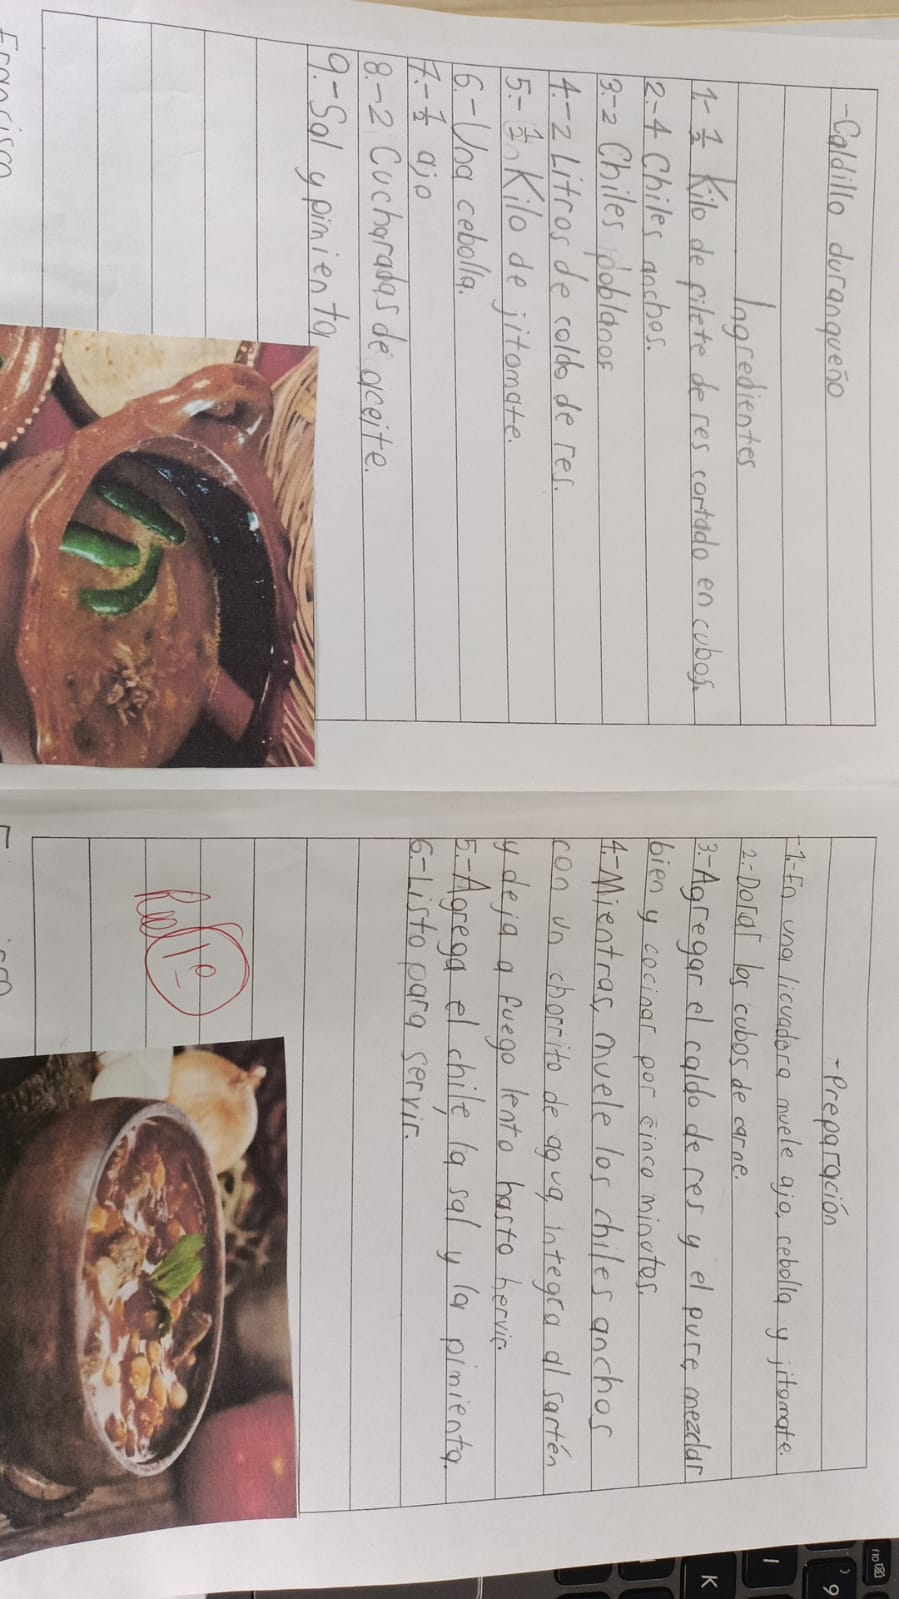 -Caldillo duranqueño
Ingredientes
1.- ½ Kilo de filete de res cortado en cubos.
2.- 4 Chiles anchos.
3.-2 Chiles poblanos
4.-2 Litros de caldo de res.
5.- ½ Kilo de jitomate.
6.-Una cebolla.
7.- ½ ajo
8.-2 Cucharadas de aceite.
9.-Sal y pimienta
-Preparación
-1.-En una licuadora muele ajo, cebolla y jitomate.
2.-Dorar los cubos de carne.
3.-Agregar el caldo de res y el pure, mezclar
bien y cocinar por cinco minutos.
4.-Mientras, muele los chiles anchos
con un chorrito de agua, integra al sartén
y deja a fuego lento hasta hervir.
5.-Agrega el chile, la sal y la pimienta.
6.-Listo para servir.
10
K
I
9
)
f10